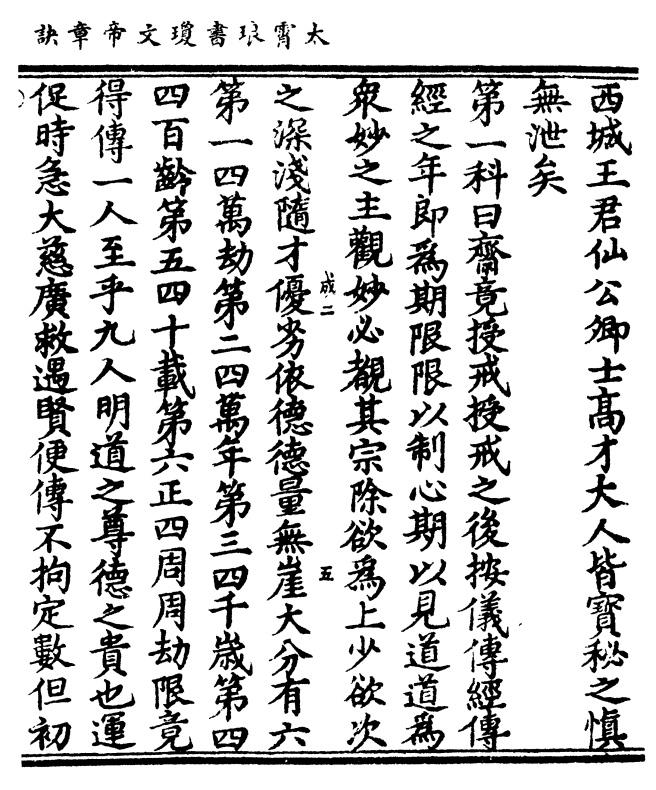 太霄琅書瓊文帝章訣
西城王君仙公卿士高才大人皆寶秘之慎
無泄矣
第一科曰齋竟授戒授戒之後按儀傳經傳
經之年即爲期限限以制心期以見道道爲
衆妙之主觀妙必覩其宗除欲爲上少欲次
成二
五
之深淺隨才優劣依德德量無崖大分有六
第一四萬劫第二四萬年第三四千歲第四
四百齡第五四十載第六正四周周劫限竟
得傳一人至乎九人明道之尊德之貴也運
促時急大慈廣救遇賢便傳不拘定數但初